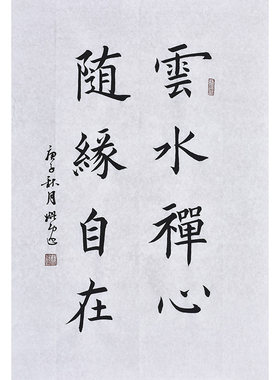 雲水禪心
隨緣自在
庚子秋月